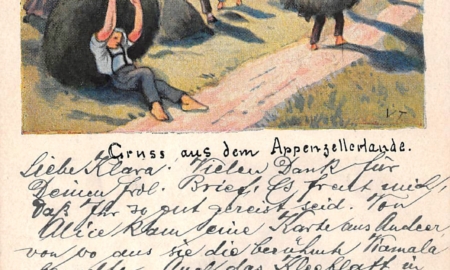 Gruss aus dem Appenzellerlande.
Liebe Klara! Vielen Dank für
Deinen frdl. Brief! Es freut mich,
daß Ihr so gut gereist seid. Von
Alice kam eine Karte aus Andeer,
von wo aus sie die berühmte Viamala
in